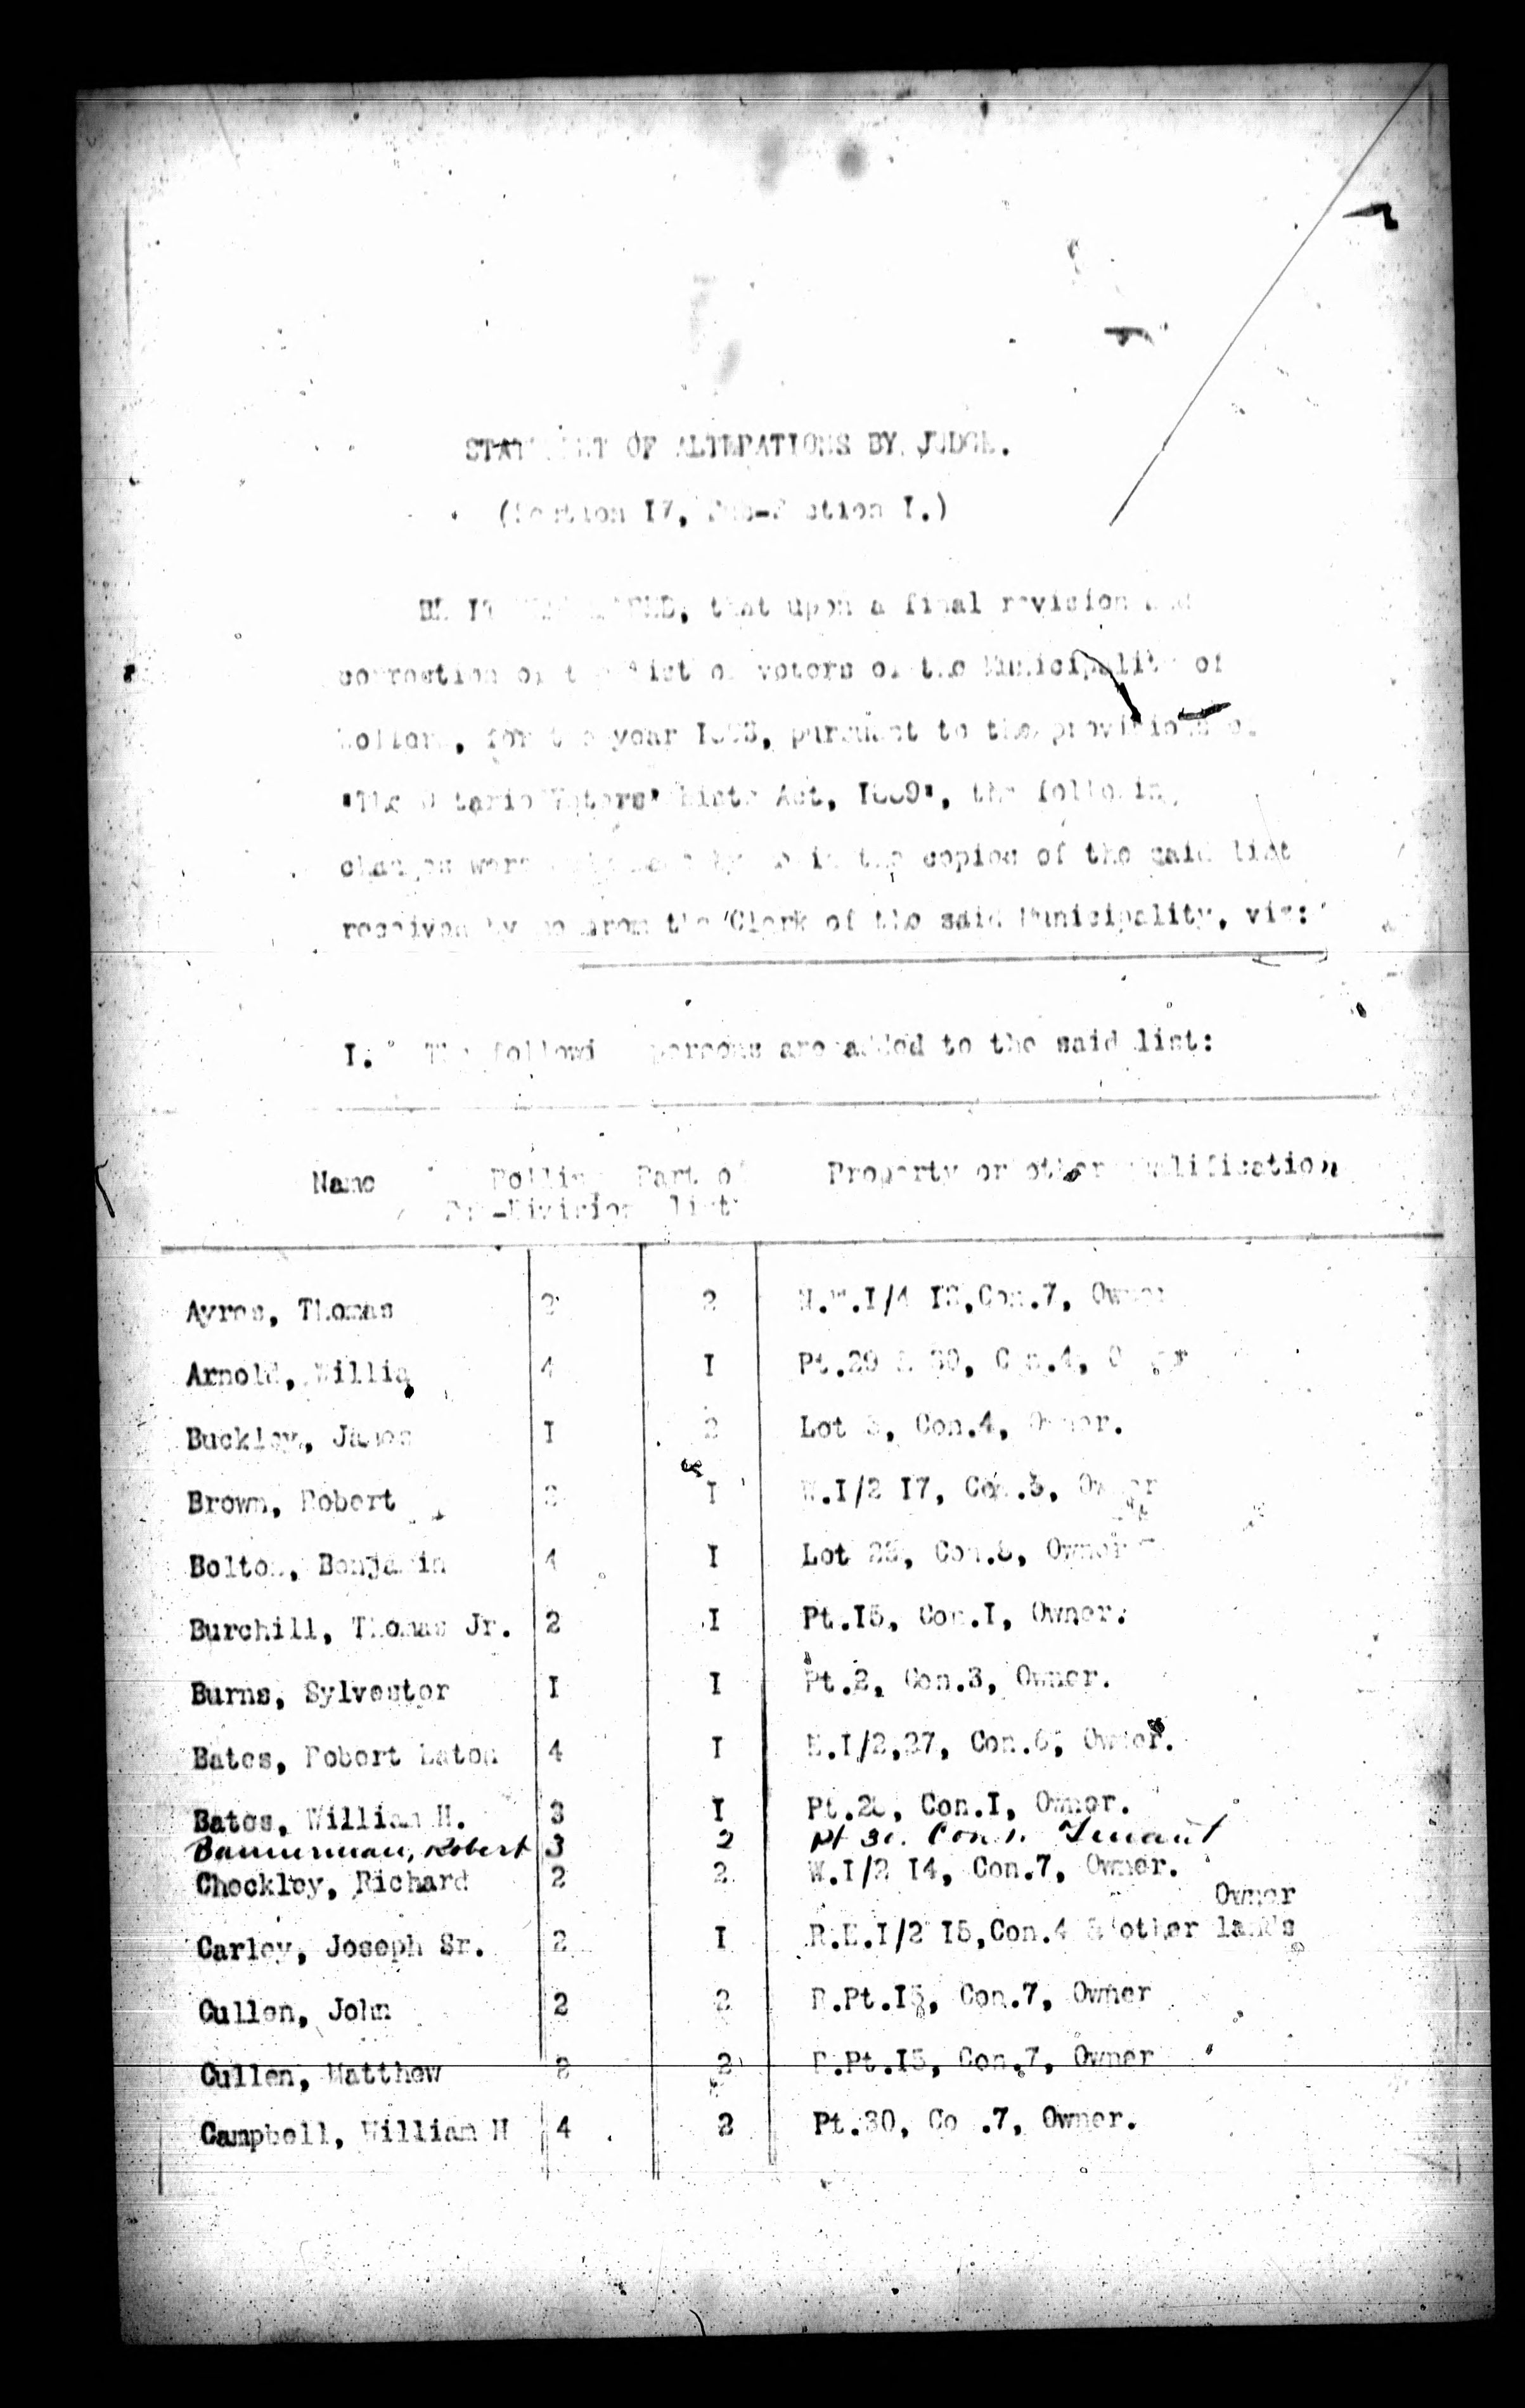 STATEMENT OF ALTERATIONS BY JUDGE.
(Section I7, Sub-Section I.)
BE IT REMEMBERED, that upon a final revision and
correction of the list of voters of the Municipality of
for the year pursuant to the provisions of
"The Ontario Voters' Lists Act, I889", the following
changes were by me in the copies of the said list
received by me from the Clerk of the said Municipality, viz:
I. The following persons are added to the said list:
Name Polling Part of Property or other qualification
Sub-Division list
Ayres, Thomas 2 2 Con.7, Owner
Arnold, Willia 4 I Pt.29 & 30, Con.4, Owner
Buckley, James I 2 Lot Con.4, Owner.
Brown, Robert I W.I/2 I7, Owner
Bolton, Benjamin 4 I Lot Owner
Burchill, Thomas Jr. 2 I Pt.I5, Con.I, Owner.
Burns, Sylvester I I Pt.2, Con.3, Owner.
Bates, Robert Eaton 4 I Con.6, Owner.
Bates, William H. 3 I Con.I, Owner.
Bannerman, Robert 3 2 Pt Con Tenant
Checkley, Richard 2 2 W.I/2 I4, Con.7, Owner.
Owner
Carley, Joseph Sr. 2 I R.E.I/2 I5,Con.4 & other lands
Cullen, John 2 2 R.Pt.I5, Con.7, Owner
Cullen, Matthew 2 2 R.Pt.I5, Con.7, Owner
Campbell, William H 4 2 Pt.30, Co .7, Owner.